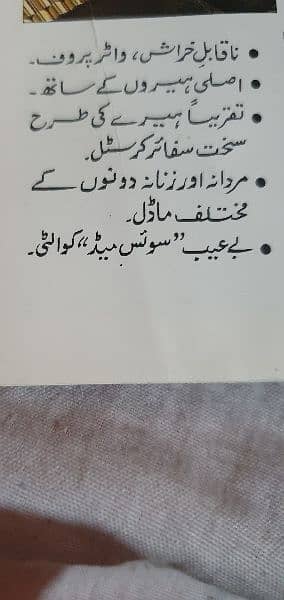 • ناقابلِ خراش، واٹر پروف۔
• اصلی ہیروں کے ساتھ۔
• تقریباً ہیرے کی طرح
سخت سفائر کرسٹل۔
• مردانہ اور زنانہ دونوں کے
مختلف ماڈل۔
• بے عیب ”سوئس میڈ“ کوالٹی۔